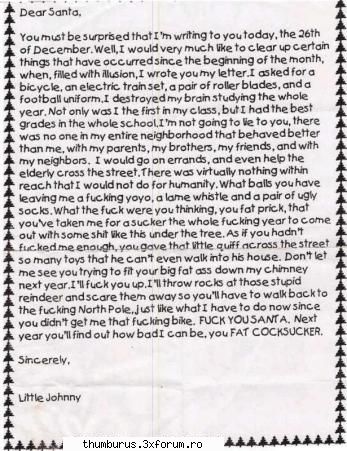 Dear Santa,
You must be surprised that I'm writing to you today, the 26th
of December. Well, I would very much like to clear up certain
things that have occurred since the beginning of the month,
when, filled with illusion, I wrote you my letter. I asked for a
bicycle, an electric train set, a pair of roller blades, and a
football uniform. I destroyed my brain studying the whole
year. Not only was I the first in my class, but I had the best
grades in the whole school. I'm not going to lie to you, there
was no one in my entire neighborhood that behaved better
than me, with my parents, my brothers, my friends, and with
my neighbors. I would go on errands, and even help the
elderly cross the street. There was virtually nothing within
reach that I would not do for humanity. What balls you have
leaving me a fucking yoyo, a lame whistle and a pair of ugly
socks. What the fuck were you thinking, you fat prick, that
you've taken me for a sucker the whole fucking year to come
out with some shit like this under the tree. As if you hadn't
fucked me enough, you gave that little quiff across the street
so many toys that he can't even walk into his house. Don't let
me see you trying to fit your big fat ass down my chimney
next year. I'll fuck you up. I'll throw rocks at those stupid
reindeer and scare them away so you'll have to walk back to
the fucking North Pole, just like what I have to do now since
you didn't get me that fucking bike. FUCK YOU SANTA. Next
year you'll find out how bad I can be, you FAT COCKSUCKER.
Sincerely,
Little Johnny
thumburus.3xforum.ro